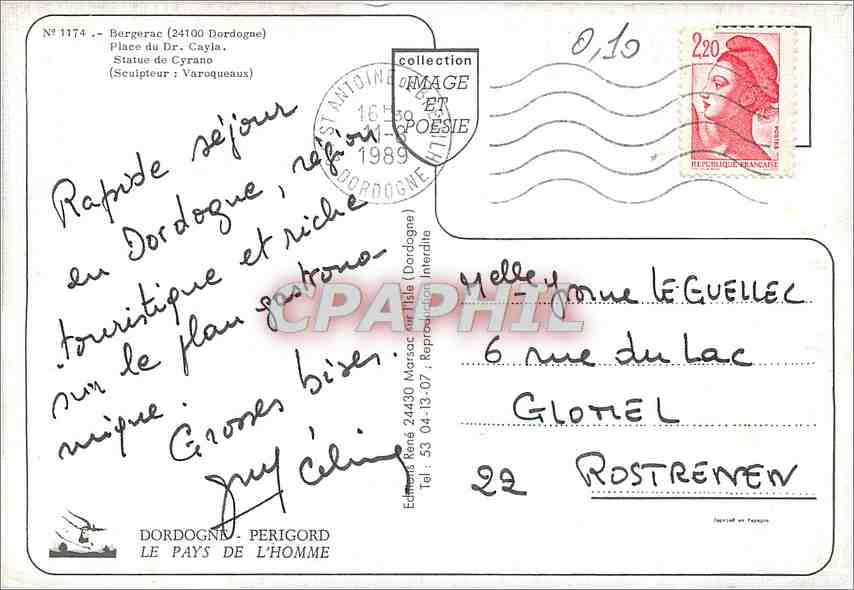 Nº 1174 .- Bergerac (24100 Dordogne)
Place du Dr. Cayla.
Statue de Cyrano
(Sculpteur : Varoqueaux)
collection
IMAGE
ET
POÉSIE
16H30
11-8
1989
DORDOGNE
0,10
2,20
POSTES
REPUBLIQUE FRANÇAISE
Rapide séjour
en Dordogne, région
touristique et riche
sur le plan gastrono-
mique.
Grosses bises.
Guy Céline
Editions René 24430 Marsac sur l'Isle (Dordogne)
Tel : 53 04-13-07 ; Reproduction Interdite
CPAPHIL
Melle Yvonne LE GUELLEC
6 rue du Lac
GLOMEL
22 ROSTRENEN
DORDOGNE - PERIGORD
LE PAYS DE L'HOMME